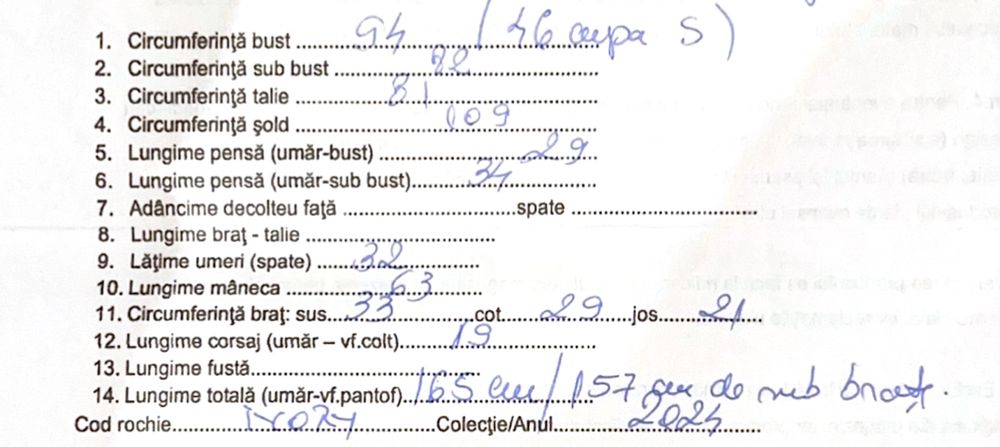 1. Circumferinţă bust ........ 94 (46 cupa S)
2. Circumferinţă sub bust ........ 82
3. Circumferinţă talie ........ 81
4. Circumferinţă şold ........ 109
5. Lungime pensă (umăr-bust) ........ 29
6. Lungime pensă (umăr-sub bust)........ 34
7. Adâncime decolteu faţă ........spate ........
8. Lungime braţ - talie ........
9. Lăţime umeri (spate) ........ 32
10. Lungime mâneca ........ 63
11. Circumferinţă braţ: sus........ 33 ........cot........ 29 ........jos........ 21
12. Lungime corsaj (umăr – vf.colt)........ 19
13. Lungime fustă........
14. Lungime totală (umăr-vf.pantof)........ 165 cm / 157 cm de sub braț.
Cod rochie........ Colecţie/Anul........ 2024